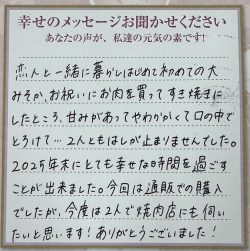 幸せのメッセージお聞かせください
あなたの声が、私達の元気の素です!
恋人と一緒に暮らしはじめて初めての大
みそか、お祝いにお肉を買ってすき焼きに
したところ、甘みがあってやわらかくて口の中で
とろけて…2人ともはしが止まりませんでした。
2025年末にとても幸せな時間を過ごす
ことが出来ました。今回は通販での購入
でしたが、今度は2人で焼肉店にも伺い
たいと思います!ありがとうございました!